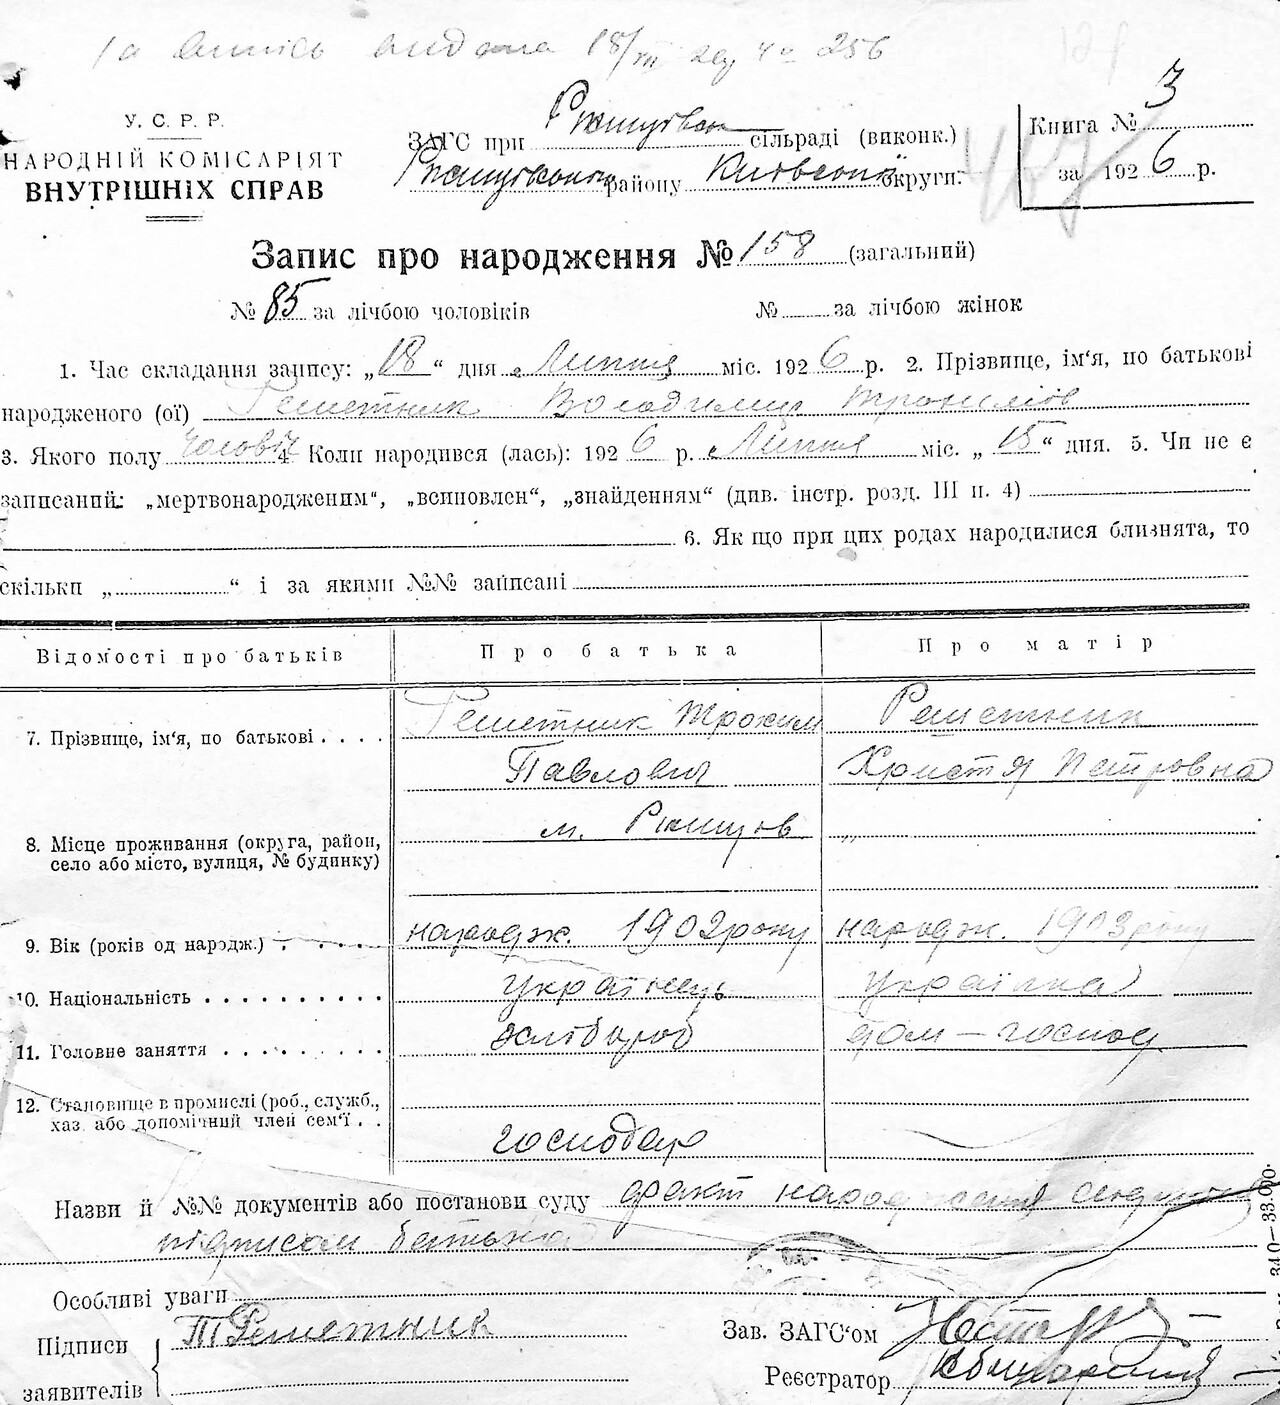 видана 18/VII 256
У. С. Р. Р.
НАРОДНІЙ КОМІСАРІЯТ
ВНУТРІШНІХ СПРАВ
ЗАГС при Ржищівськ сільраді (виконк.)
Ржищівського району Київської округи.
Книга № 3
за 1926 р.
Запис про народження № 158 (загальний)
№ 85 за лічбою чоловіків № за лічбою жінок
1. Час складання запису: „18“ дня Липня міс. 1926 р. 2. Прізвище, ім‘я, по батькові
народженого (ої) Решетник Володимир Трохимів
3. Якого полу чоловіч 4. Коли народився (лась): 1926 р. Липня міс. „15“ дня. 5. Чи не є
записаний: „мертвонародженим“, „всиновлен“, „знайденням“ (див. інстр. розд. III п. 4)
6. Як що при цих родах народилися близнята, то
скільки „ “ і за якими №№ записані
Відомості про батьків Про батька Про матір
7. Прізвище, ім'я, по батькові . . . . Решетник Трохим Решетник
Павлович Христя Петровна
8. Місце проживання (округа, район, м. Ржищов „
село або місто, вулиця, № будинку)
9. Вік (років од народж.) . . . . . народж. 1902 року народж. 1903 року
10. Національність . . . . . . . . . . українець українка
11. Головне заняття . . . . . . . . . хлібороб дом — господ
12. Становище в промислі (роб., служб.,
хаз. або допомічний член сем'ї . . господар
Назви й №№ документів або постанови суду факт народження
підписом батька
Особливі уваги
Підписи Т Решетник Зав. ЗАГС‘ом
заявителів Реєстратор
340—33.000.